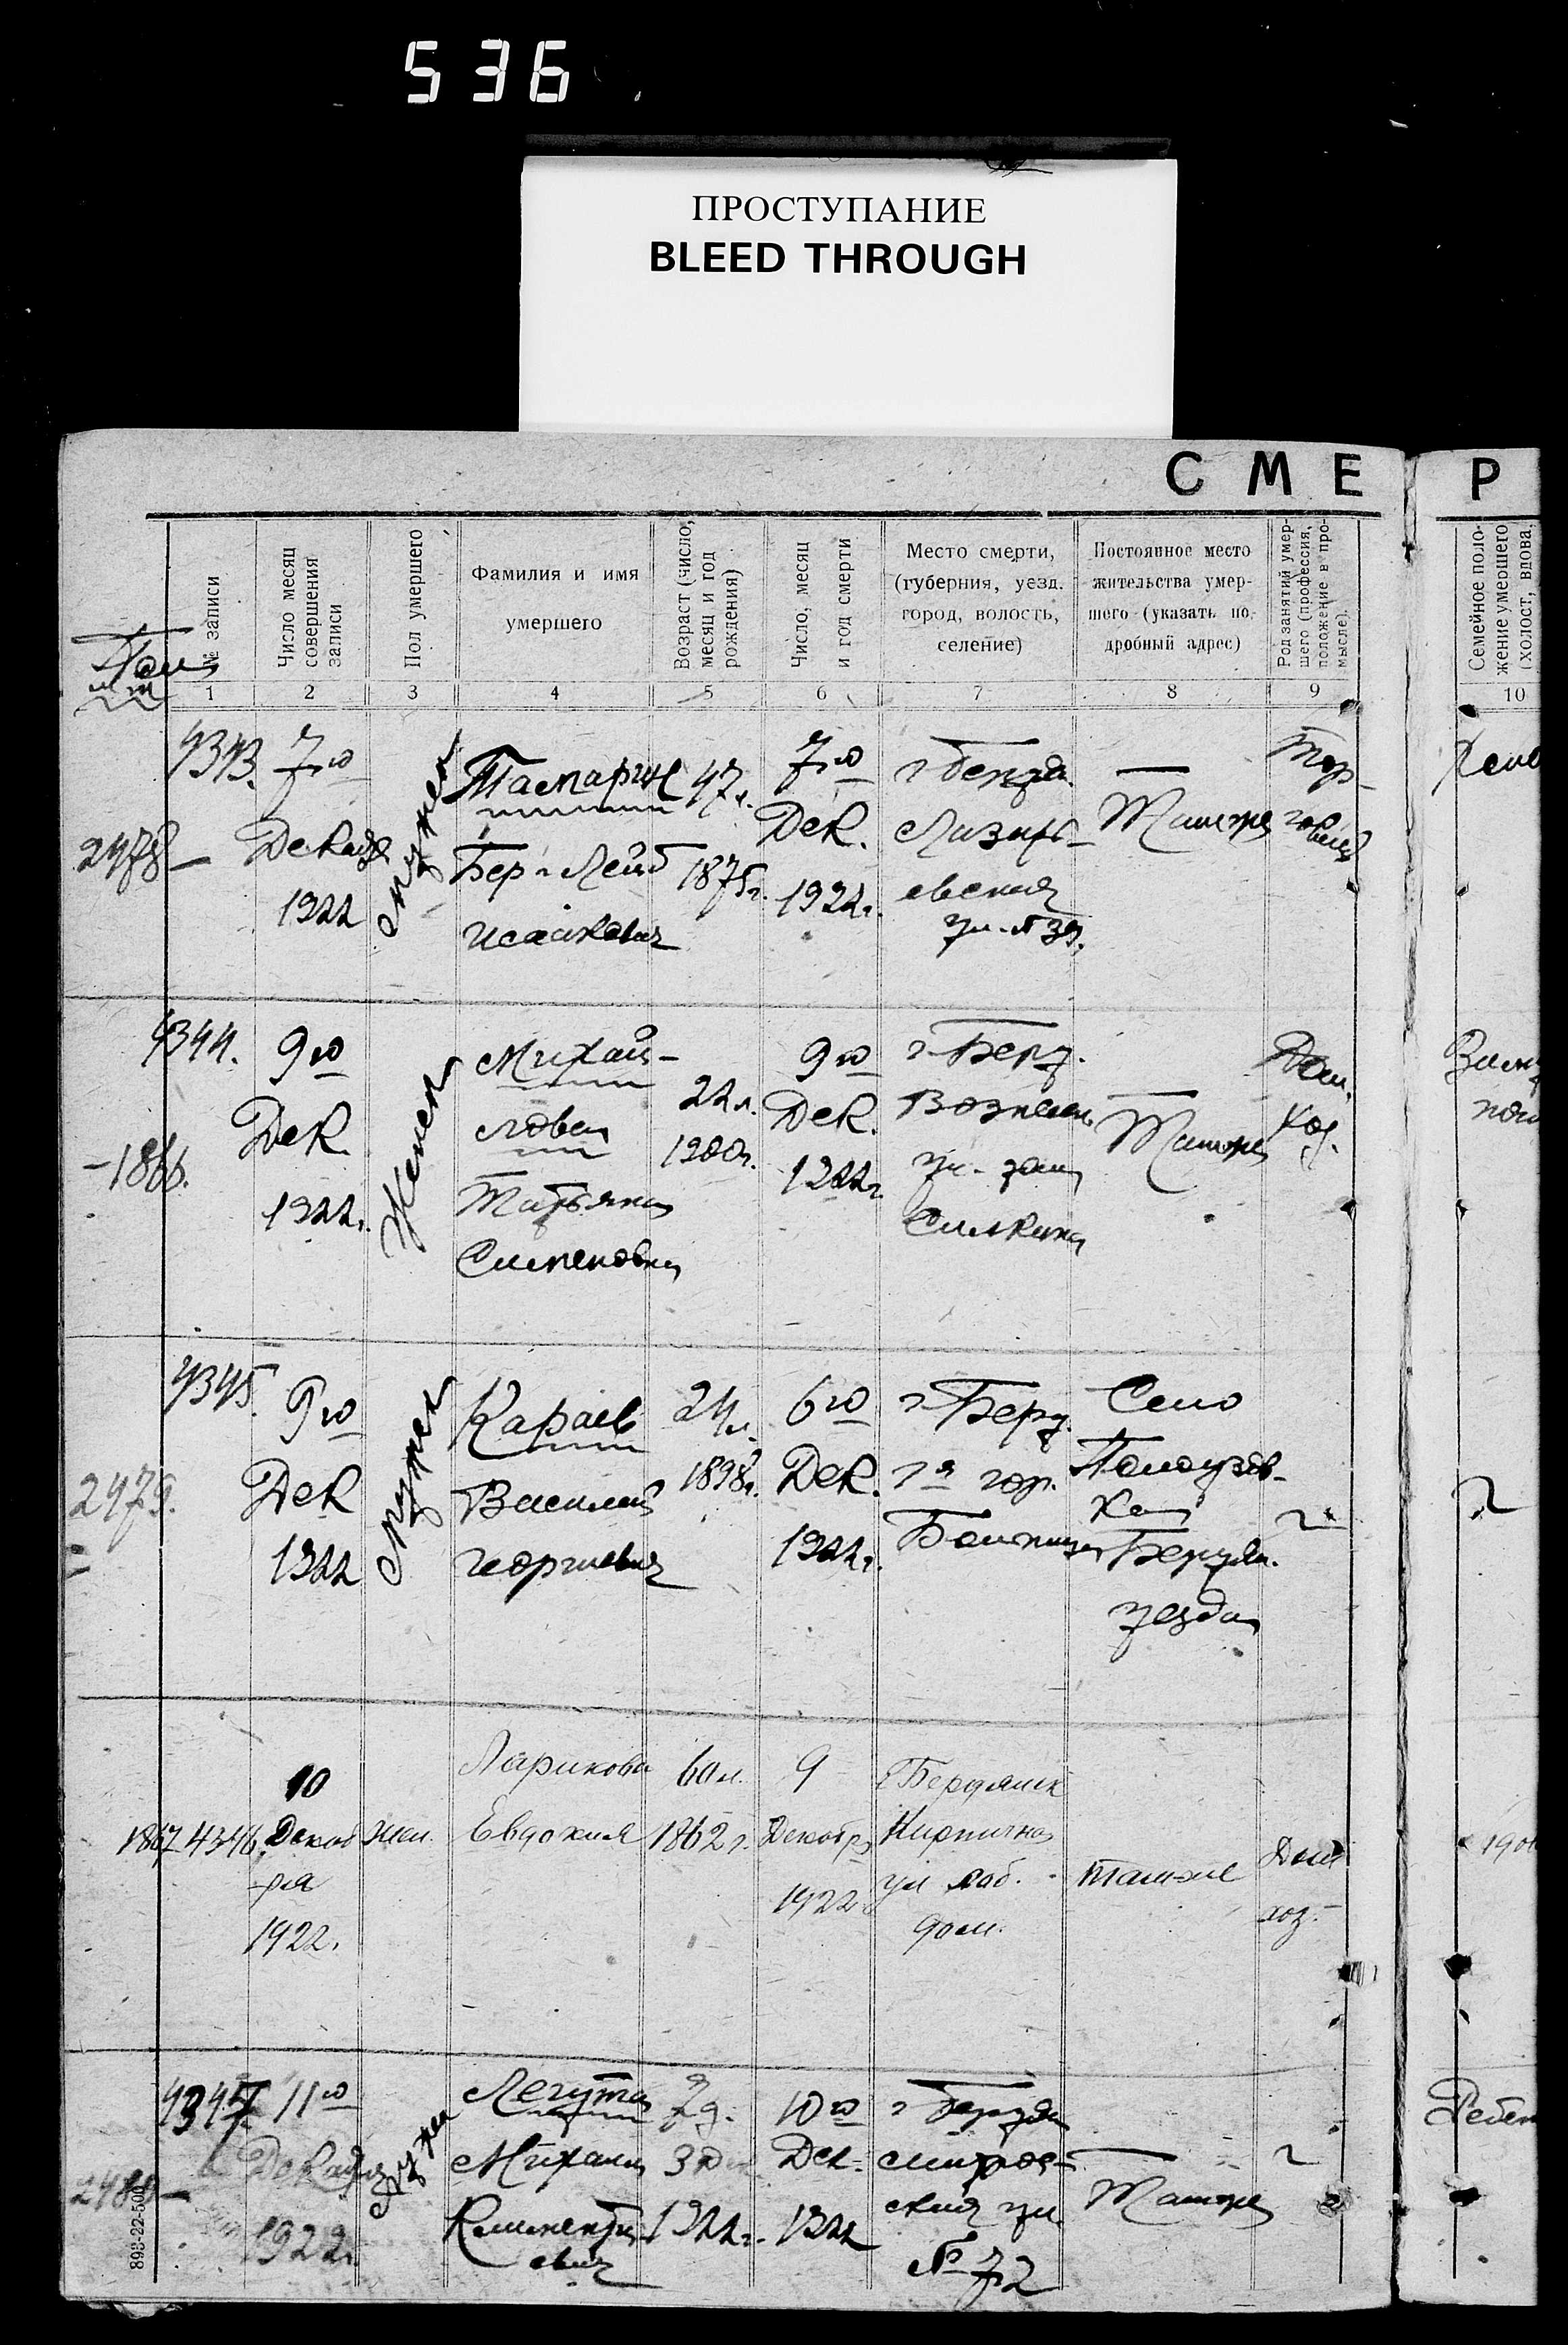 536
ПРОСТУПАНИЕ
BLEED THROUGH
СМЕ
Р
№ записи
Число месяц
совершения
записи
Пол умершего
Фамилия и имя
умершего
Возраст (число,
месяц и год
рождения)
Число, месяц
и год смерти
Место смерти,
(губерния, уезд.
город, волость,
селение)
Постоянное место
жительства умер-
шего (указать по-
дробный адрес)
Род занятий умер-
шего (профессия,
положение в про-
мысле).
Семейное поло-
жение умершего
(холост, вдова,
1 2 3 4 5 6 7 8 9 10
4343.
2478
7го
Декабря
1922
Мужск
Бер-Лейб
Исаакович
47 л.
1875г.
7го
Дек.
1922г.
Лазарь-
евская
ул. № 39.
Также
Тор-
говец
4344.
1866.
9го
Дек.
1922г.
Женск
Михай-
лова
Татьяна
Симоновна
22 л.
1900г.
9го
Дек.
1922г.
г. Берд.
Вознесен.
ул. дом
Также
Дом.
Хоз.
4345.
2479.
9го
Дек
1922
Мужск
Караев
Василий
Георгиевич
24 л.
1898г.
6го
Дек.
1922г.
г. Берд.
1я гор.
Больница
Село
Полоузов-
ка
Бердян.
уезда
?
?
1867
4346.
10
Декаб
-ря
1922.
жен.
Ларикова
Евдокия
60 л.
1862 г.
9
Декабря
1922 г.
г. Бердянск
Кирпичная
ул. раб.
дом.
также
Дом
хоз.
4347
2480
11го
Декабря
1922г.
Мужск
Легута
Михаил
Климентье-
вич
3го
1922г.
10го
Дек.
1922
г. Бердян
ская ул.
№ 72
Также
?
893-22-500